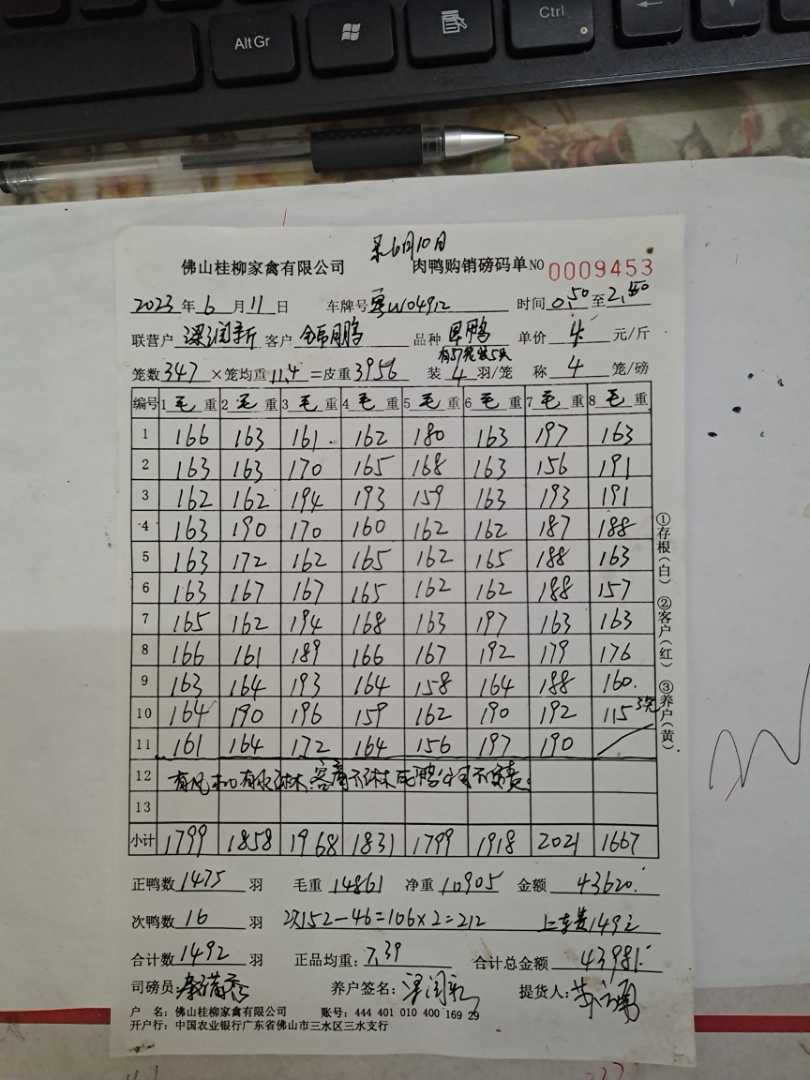 Ctrl
Alt Gr
6月10日
佛山桂柳家禽有限公司 肉鸭购销磅码单NO 0009453
2023年6月11日 车牌号粤W04912 时间0.50至2.40
联营户 梁润新 客户 锦鹏 品种 单价 4 元/斤
有57笼装5只
笼数347×笼均重11.4=皮重3956 装4羽/笼 称4笼/磅
编号 1毛重 2毛重 3毛重 4毛重 5毛重 6毛重 7毛重 8毛重
1 166 163 161 162 180 163 197 163
2 163 163 170 165 168 163 156 191
3 162 162 194 193 159 163 193 191
4 163 190 170 160 162 162 187 188
5 163 172 162 165 162 165 188 163
6 163 167 167 165 162 162 188 157
7 165 162 194 168 163 197 163 163
8 166 161 189 166 167 192 179 176
9 163 164 193 164 158 164 188 160
10 164 190 196 159 162 190 192 115 3笼
11 161 164 172 164 156 197 190
12 有风机有水淋 客商不淋 死鸭公司不负责
13
小计 1799 1858 1968 1831 1799 1918 2021 1667
正鸭数1475羽 毛重14861 净重10905 金额43620.
次鸭数16羽 次152-46=106×2=212 上车费1492
合计数1492羽 正品均重:7.39 合计总金额43981.
司磅员: 养户签名:梁润新 提货人:
户 名:佛山桂柳家禽有限公司 账号:444 401 010 400 169 29
开户行:中国农业银行广东省佛山市三水区三水支行
①存根(白) ②客户(红) ③养户(黄)